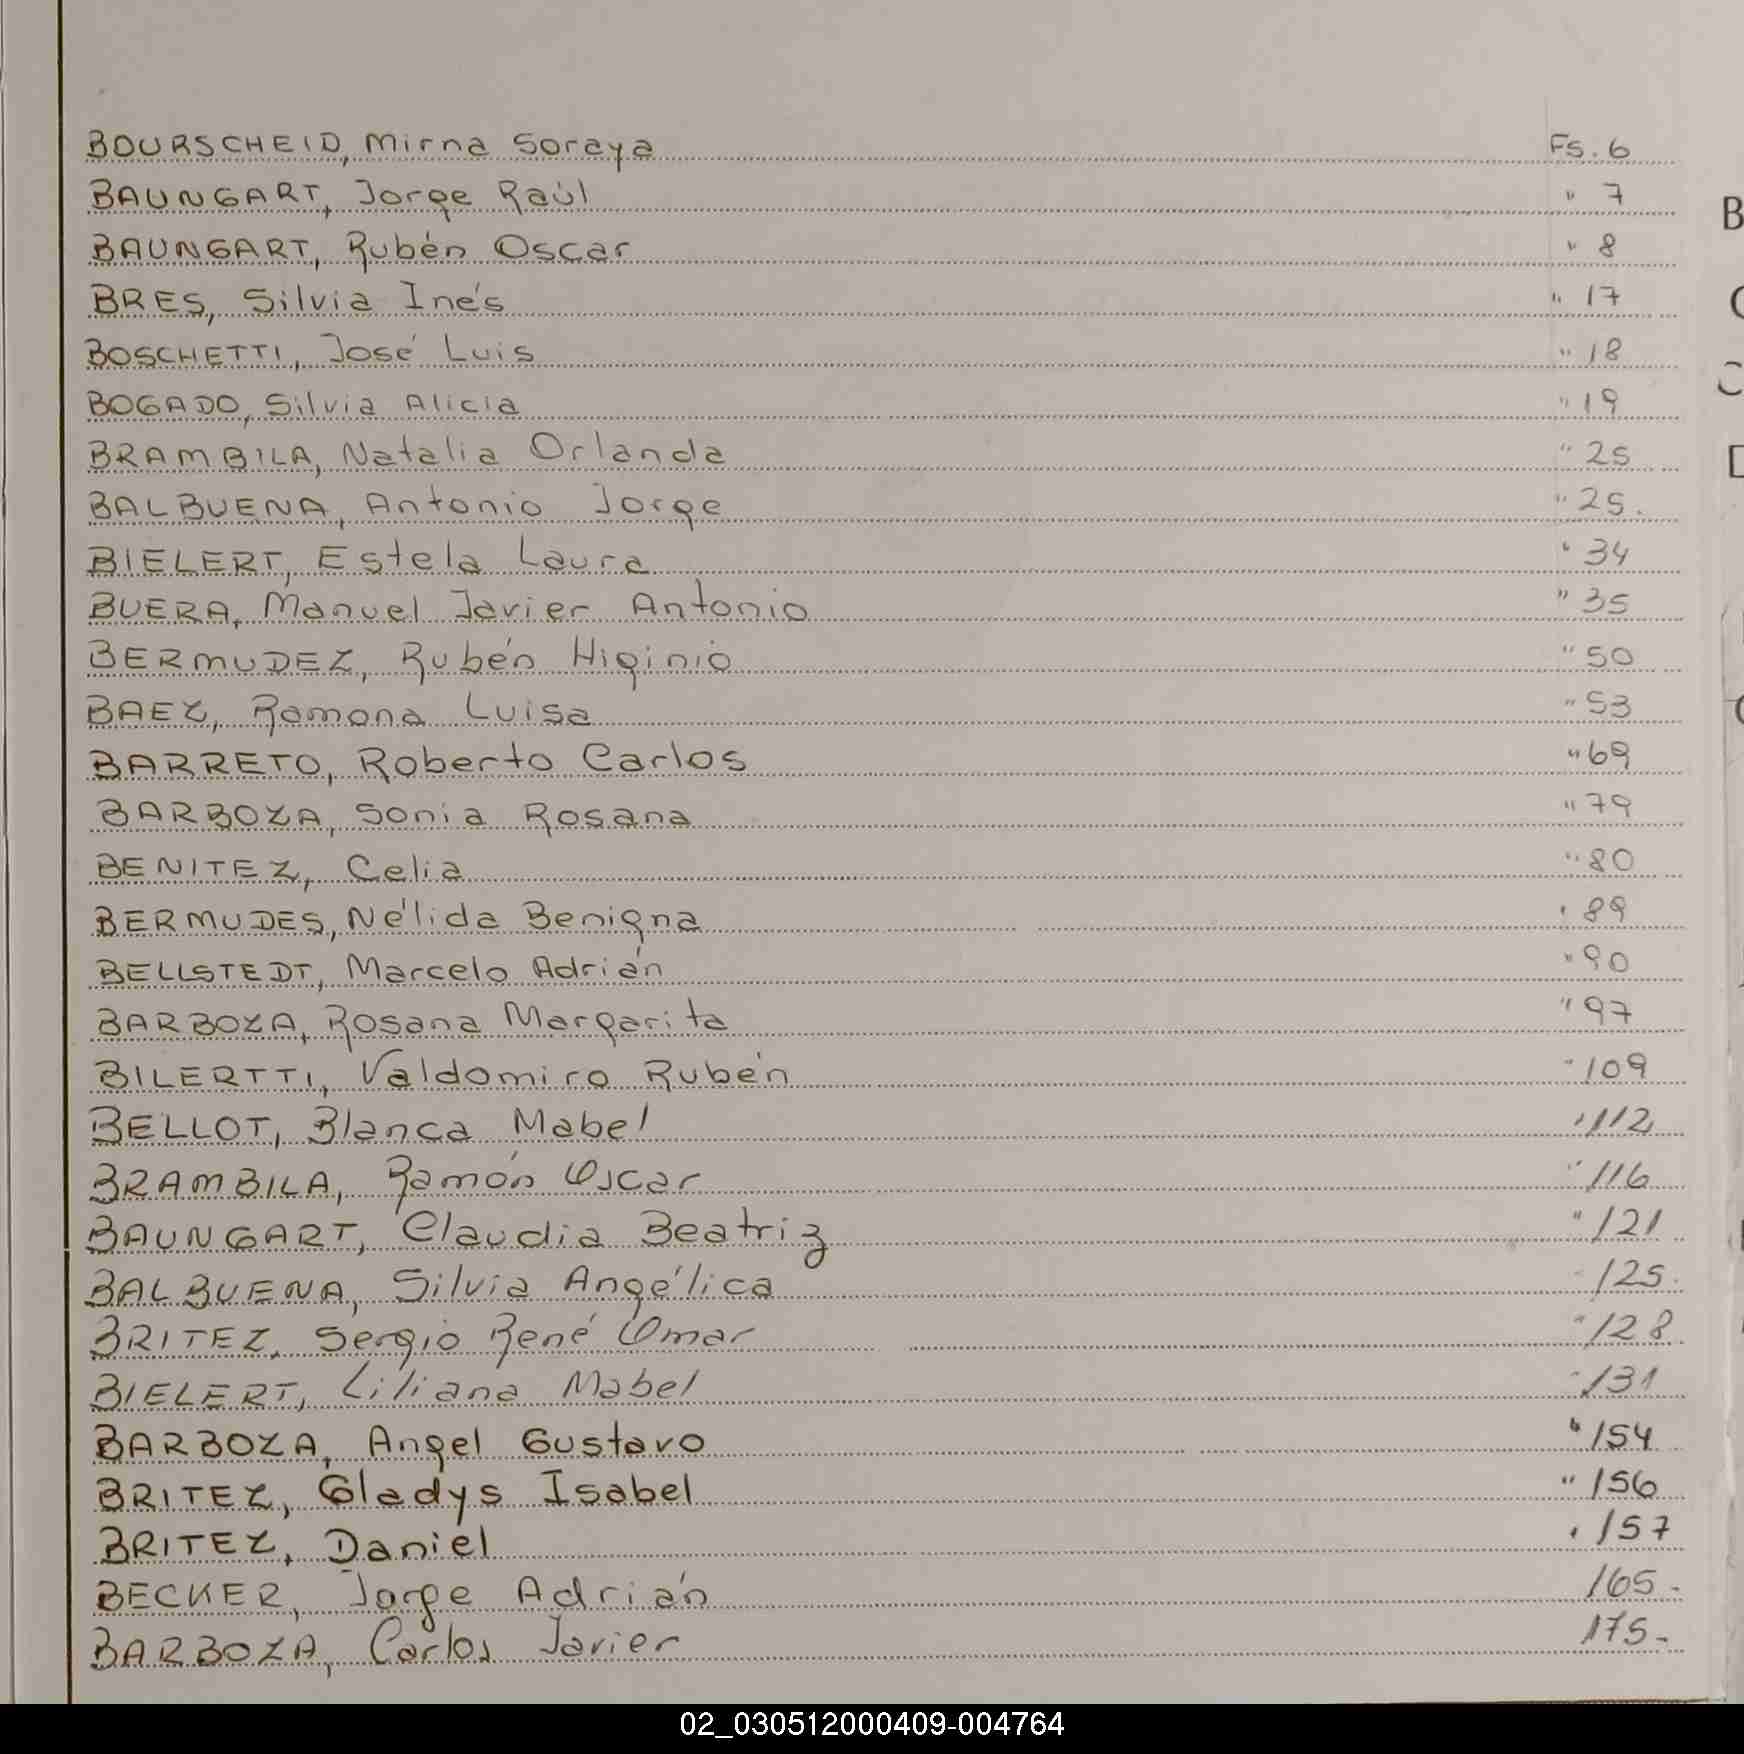 BOURSCHEID, Mirna Soraya Fs. 6
BAUNGART, Jorge Raúl " 7
BAUNGART, Rubén Oscar " 8
BRES, Silvia Inés " 17
BOSCHETTI, José Luis " 18
BOGADO, Silvia Alicia " 19
BRAMBILA, Natalia Orlanda " 25
BALBUENA, Antonio Jorge " 25.
BIELERT, Estela Laura " 34
BUERA, Manuel Javier Antonio " 35
BERMUDEZ, Rubén Higinio " 50
BAEZ, Ramona Luisa " 53
BARRETO, Roberto Carlos " 69
BARBOZA, Sonia Rosana " 79
BENITEZ, Celia " 80
BERMUDES, Nélida Benigna " 89
BELLSTEDT, Marcelo Adrián " 90
BARBOZA, Rosana Margarita " 97
BILERTTI, Valdomiro Rubén " 109
BELLOT, Blanca Mabel " 112
BRAMBILA, Ramón Oscar " 116
BAUNGART, Claudia Beatriz " 121
BALBUENA, Silvia Angélica " 125.
BRITEZ, Sergio René Omar " 128
BIELERT, Liliana Mabel " 131
BARBOZA, Angel Gustavo " 154
BRITEZ, Gladys Isabel " 156
BRITEZ, Daniel " 157
BECKER, Jorge Adrián 165.
BARBOZA, Carlos Javier 175.
B
C
D
02_030512000409-004764